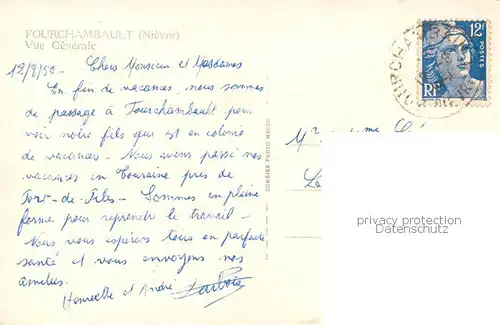 FOURCHAMBAULT (Nièvre)
Vue Générale
12/8/50 - Chers Monsieur et Mesdames
En fin de vacances, nous sommes
de passage à Fourchambault pour
voir notre fils qui est en colonie
de vacances - Nous avons passé nos
vacances en Touraine près de
Port-de-Piles - Sommes en pleine
forme pour reprendre le travail -
Nous vous espérons tous en parfaite
santé et vous envoyons nos
amitiés.
Henriette et André
COMBIER PHOTO MACON
12F
POSTES
RF
FOURCHAMBAULT
privacy protection
Datenschutz